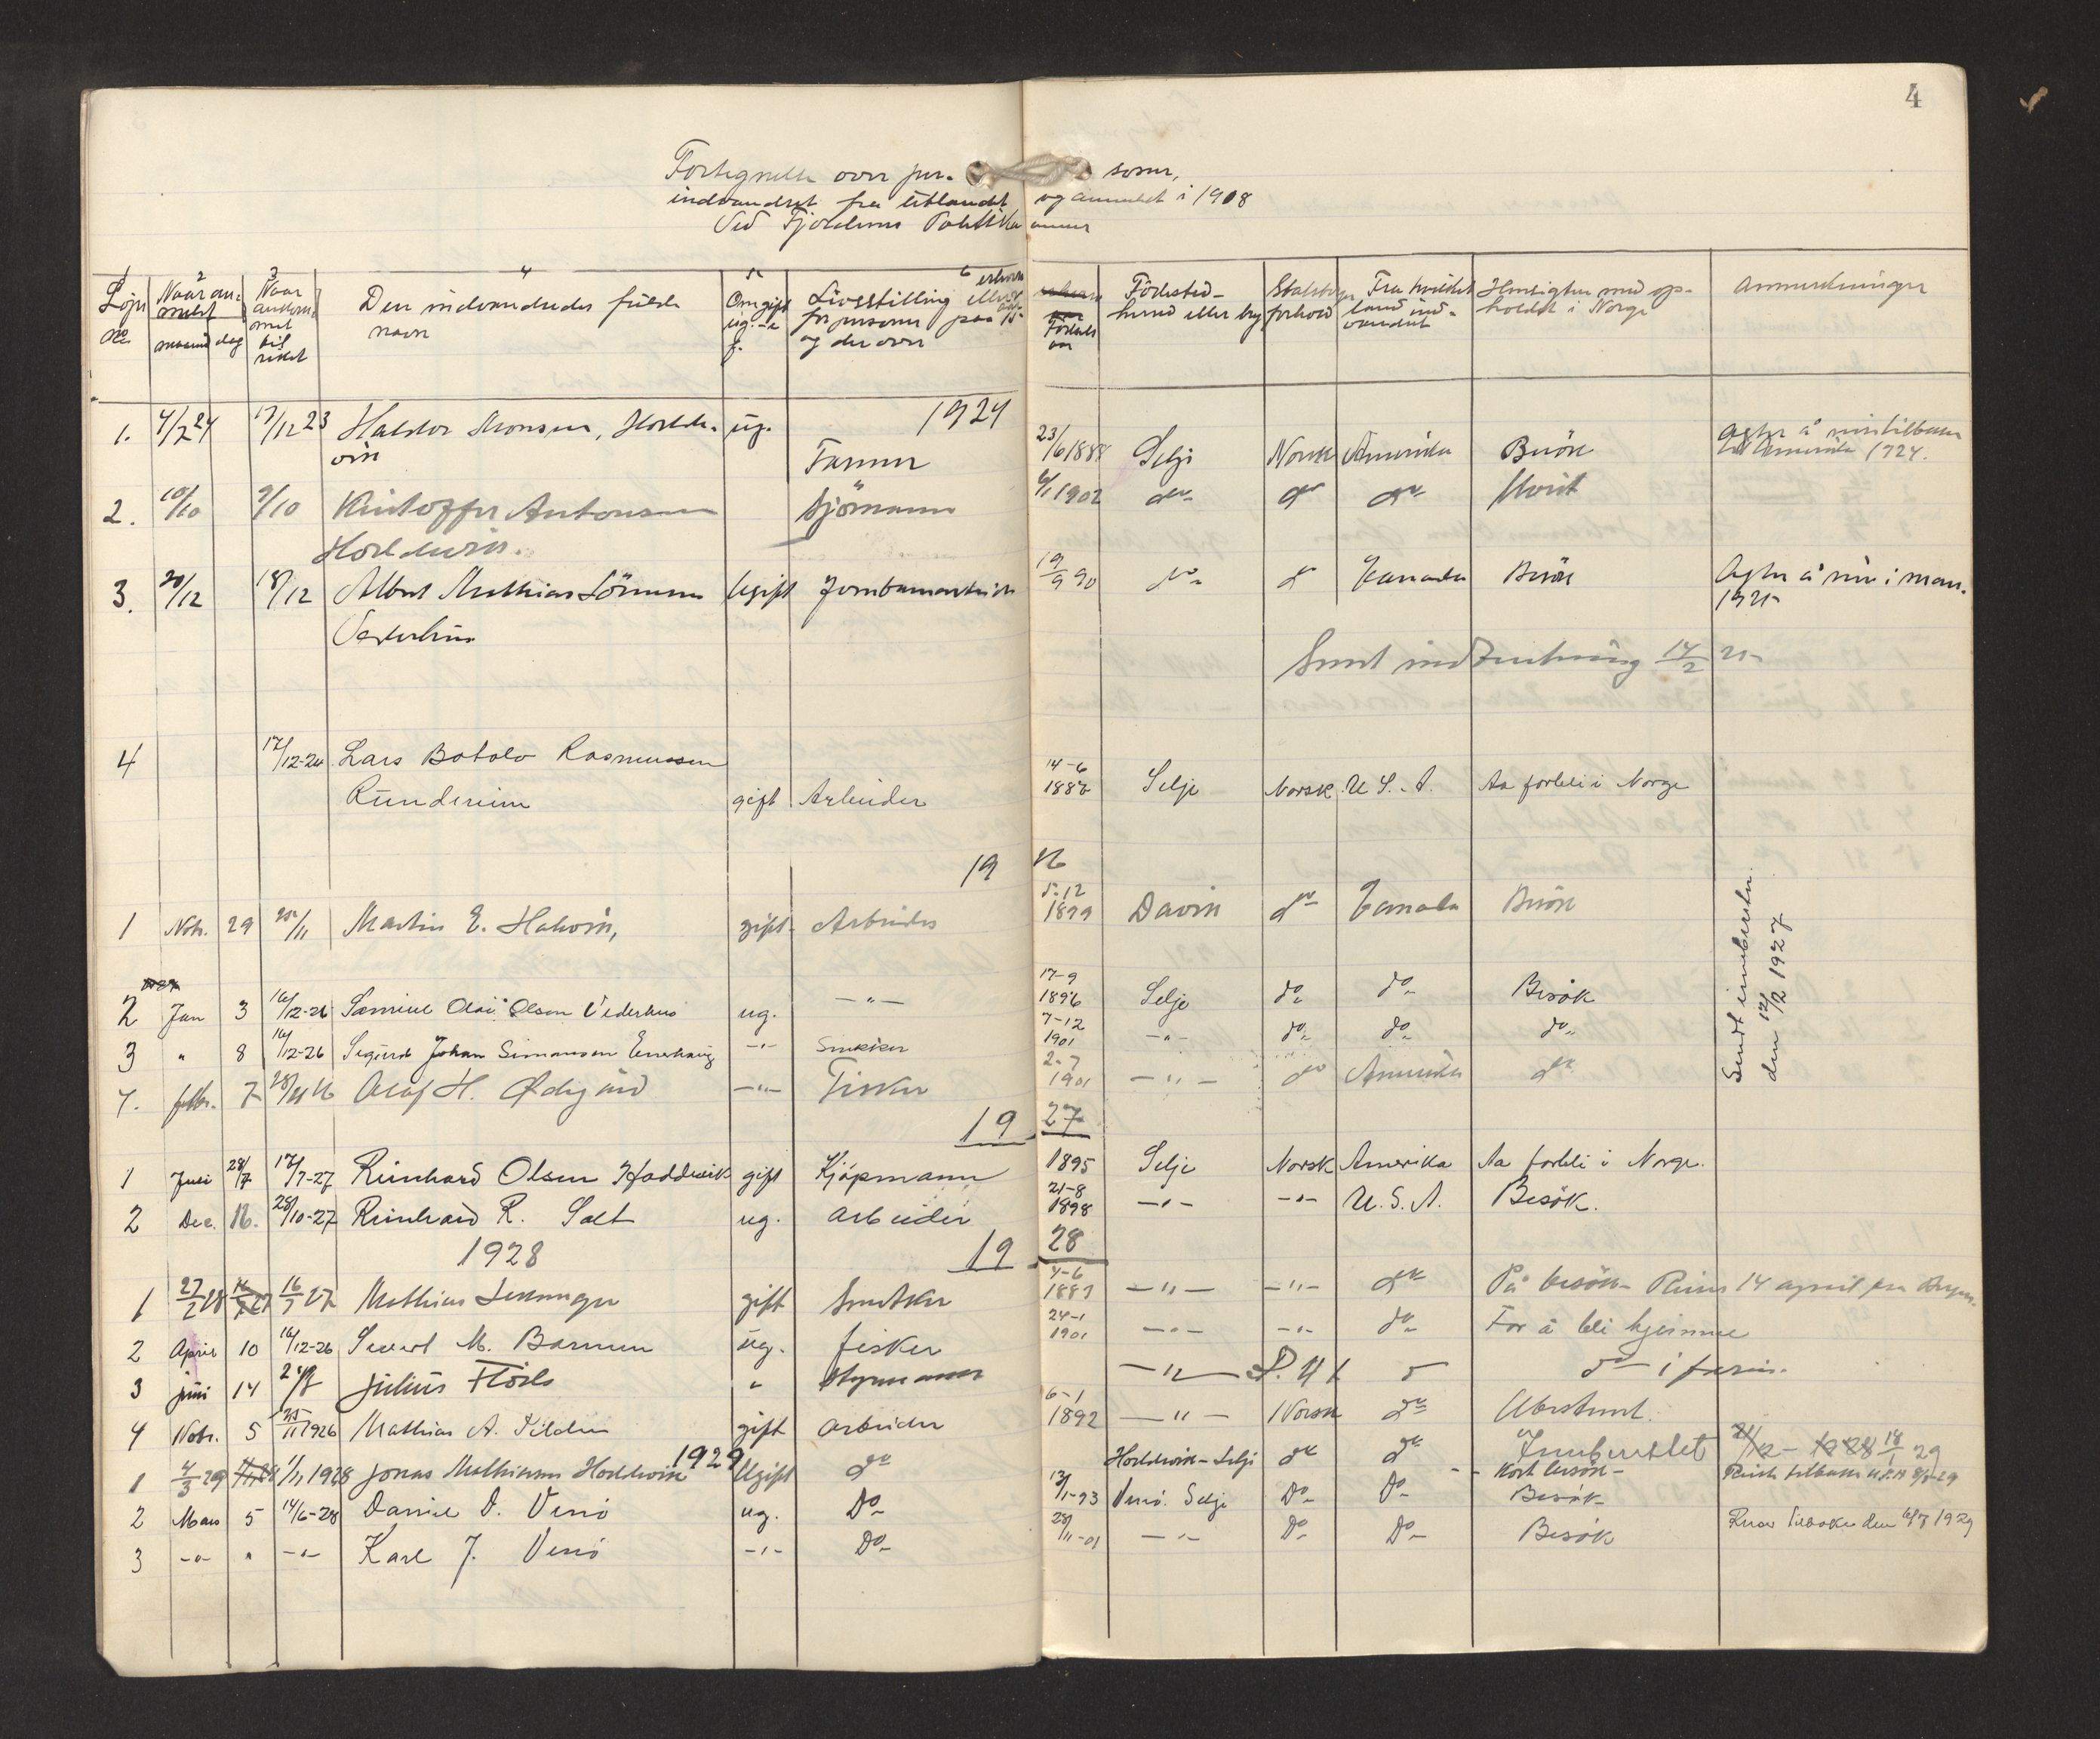 4
Fortegnelse over per- soner,
indvandret fra utlandet og anmeldt i 1908
Ved Fjordenes Politikammer
1 2 3 4 5 6
Löpe No
Naar anmeldt
maaned dag
Naar ankommet til riket
Den indvandredes fulde navn
Om gift ug. e. f.
Livsstilling eller erhverv for personer paa 15 aar og derover
Födselsaar
Födested - herred eller by
Statsborgerforhold
Fra hvilket land indvandret
Hensigten med opholdet i Norge
Anmerkninger
1924
1. 4/2 24 17/12 23 Haldor Monsen, Hoddevik ug. Farmer 23/6 1888 Selje Norsk Amerika Besök Agter å reise tilbake til Amerika 1924.
2. 10/10 9/10 Kristoffer Antonsen Hoddevik. Sjömann 6/1 1902 do do do
3. 20/12 18/12 Albert Mathias Sörensen Vederhus Ugift 19/9 90 do do Canada Besök Agter å reise i mars. 1925
Sendt indberetning 14/2 25
4 17/12-24 Lars Botolv Rasmussen
Rundereim gift Arbeider 14-6 1882 Selje Norsk U. S. A. Aa forbli i Norge
19 26
1 Nov. 29 25/11 Martin E. gift Arbeider 5-12 1899 Davik do Canada Besök
2 Jan 3 16/12-26 Samuel Olai Olsen Vederhus ug. -"- 17-9 1896 Selje do do Besök
3 " 8 16/12-26 Sigurd Johan Simonsen -"- Snekker 7-12 1901 -"- do do do
4. febr. 7 Olaf H. Ødegård -"- Fisker 2-7 1901 -"- do Amerika do
Sendt innberetn. den 12/2 1927
19 27
1 Juli 28/7 17/7-27 Reinhard Olsen Hoddevik gift Kjöpmann 1895 Selje Norsk Amerika Aa forbli i Norge.
2 Dec. 16. 28/10-27 Reinhard R. Salt ug. arbeider 21-8 1898 -"- -"- U. S. A. Besök.
1928 19 28
1 27/2 28 16/7 27 Mathias gift Snekker 4-6 1887 -"- -"- do På besök - Reiser 14 april fra Bergen.
2 April 10 16/12-26 Sivert M. Barmen ug. fisker 24-1 1901 -"- -"- do For å bli hjemme
3 juni 14 Julius " Styrmann -"- do i ferie.
4 Nobr. 5 25/11 1926 Mathias A. gift arbeider 6-1 1892 -"- Norsk do Ubestemt.
Innberettet 18/1 29
1929
1 4/3 29 1/11 1928 Jonas Mathiasen Hoddevik Ugift do Hoddevik - Selje do do Kort besök - Reiste tilbake
2 Mars 5 14/6-28 Daniel D. Venö ug. Do 13/1-93 Venö. Selje Do Do Besök
3 -"- " -"- Karl J. Venö -"- Do 28/11-01 -"- Do Do Besök Reiser tilbake den 6/7 1929